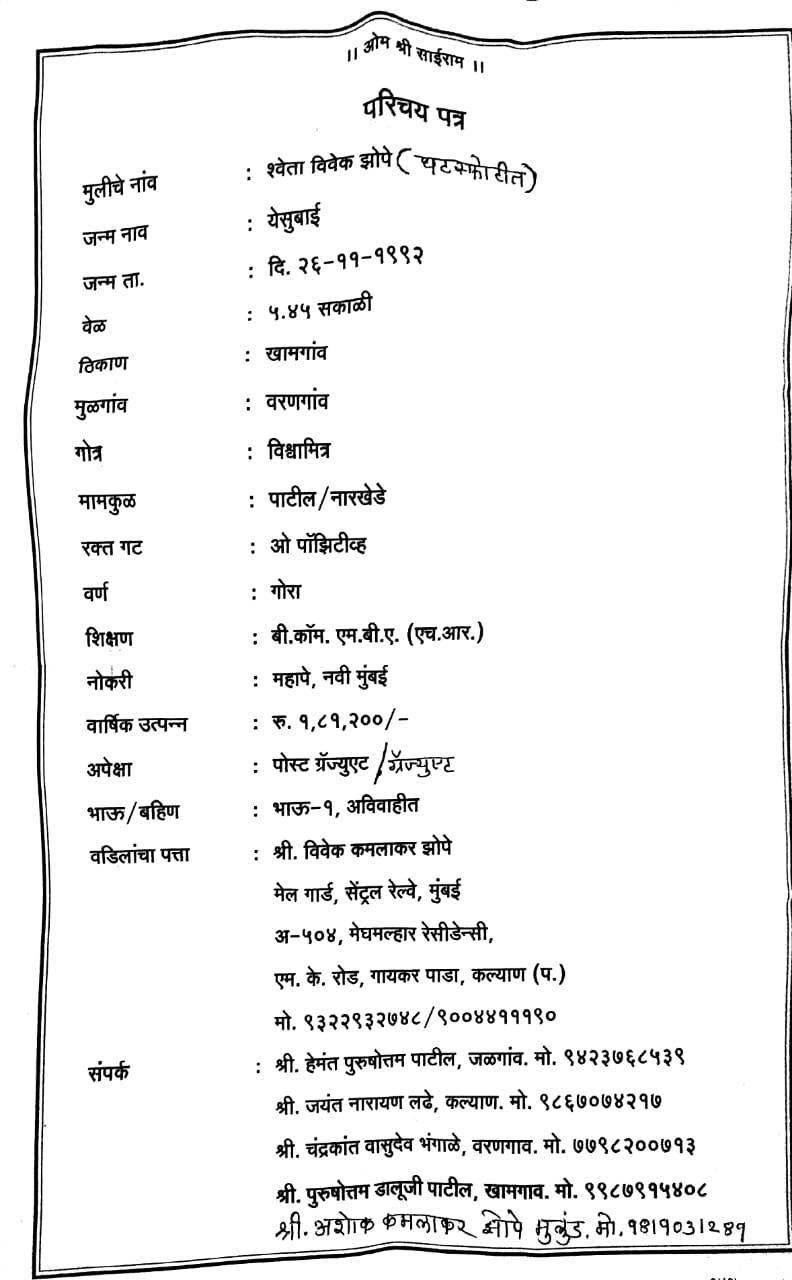 ।। ओम श्री साईराम ।।
परिचय पत्र
मुलीचे नांव : श्वेता विवेक झोपे (घटस्फोटीत)
जन्म नाव : येसुबाई
जन्म ता. : दि. २६-११-१९९२
वेळ : ५.४५ सकाळी
ठिकाण : खामगांव
मुळगांव : वरणगांव
गोत्र : विश्वामित्र
मामकुळ : पाटील/नारखेडे
रक्त गट : ओ पॉझिटीव्ह
वर्ण : गोरा
शिक्षण : बी.कॉम. एम.बी.ए. (एच.आर.)
नोकरी : महापे, नवी मुंबई
वार्षिक उत्पन्न : रु. १,८१,२००/-
अपेक्षा : पोस्ट ग्रॅज्युएट /ग्रॅज्युएट
भाऊ/बहिण : भाऊ-१, अविवाहीत
वडिलांचा पत्ता : श्री. विवेक कमलाकर झोपे
मेल गार्ड, सेंट्रल रेल्वे, मुंबई
अ-५०४, मेघमल्हार रेसीडेन्सी,
एम. के. रोड, गायकर पाडा, कल्याण (प.)
मो. ९३२२९३२७४८/९००४४१११९०
संपर्क : श्री. हेमंत पुरुषोत्तम पाटील, जळगांव. मो. ९४२३७६८५३९
श्री. जयंत नारायण लढे, कल्याण. मो. ९८६७०७४२१७
श्री. चंद्रकांत वासुदेव भंगाळे, वरणगाव. मो. ७७९८२००७१३
श्री. पुरुषोत्तम डालूजी पाटील, खामगाव. मो. ९९८७९१५४०८
श्री. अशोक कमलाकर झोपे मुलुंड. मो.